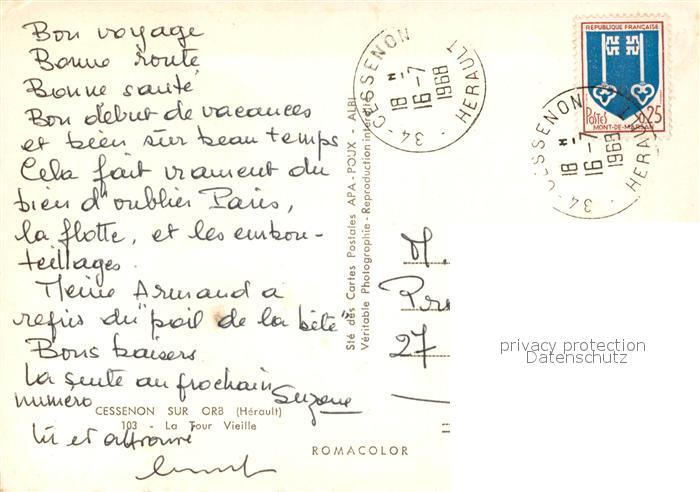 Bon voyage
Bonne route
Bonne santé
Bon début de vacances
et bien sûr beau temps
Cela fait vraiment du
bien d'oublier Paris,
la flotte, et les embou-
teillages.
Même Armand a
repris du "poil de la bête"
Bons baisers
La suite au prochain
numéro
Suzanne
CESSENON SUR ORB (Hérault)
103 - La Tour Vieille
Lu et approuvé
ROMACOLOR
Sté des Cartes Postales APA-POUX - ALBI
Véritable Photographie - Reproduction interdite
34 - CESSENON
HERAULT
18 H
16-7
1968
REPUBLIQUE FRANÇAISE
POSTES
0,25
MONT-DE-MARSAN
34 - CESSENON
HERAULT
18 H
16-7
1968
M.
27
privacy protection
Datenschutz